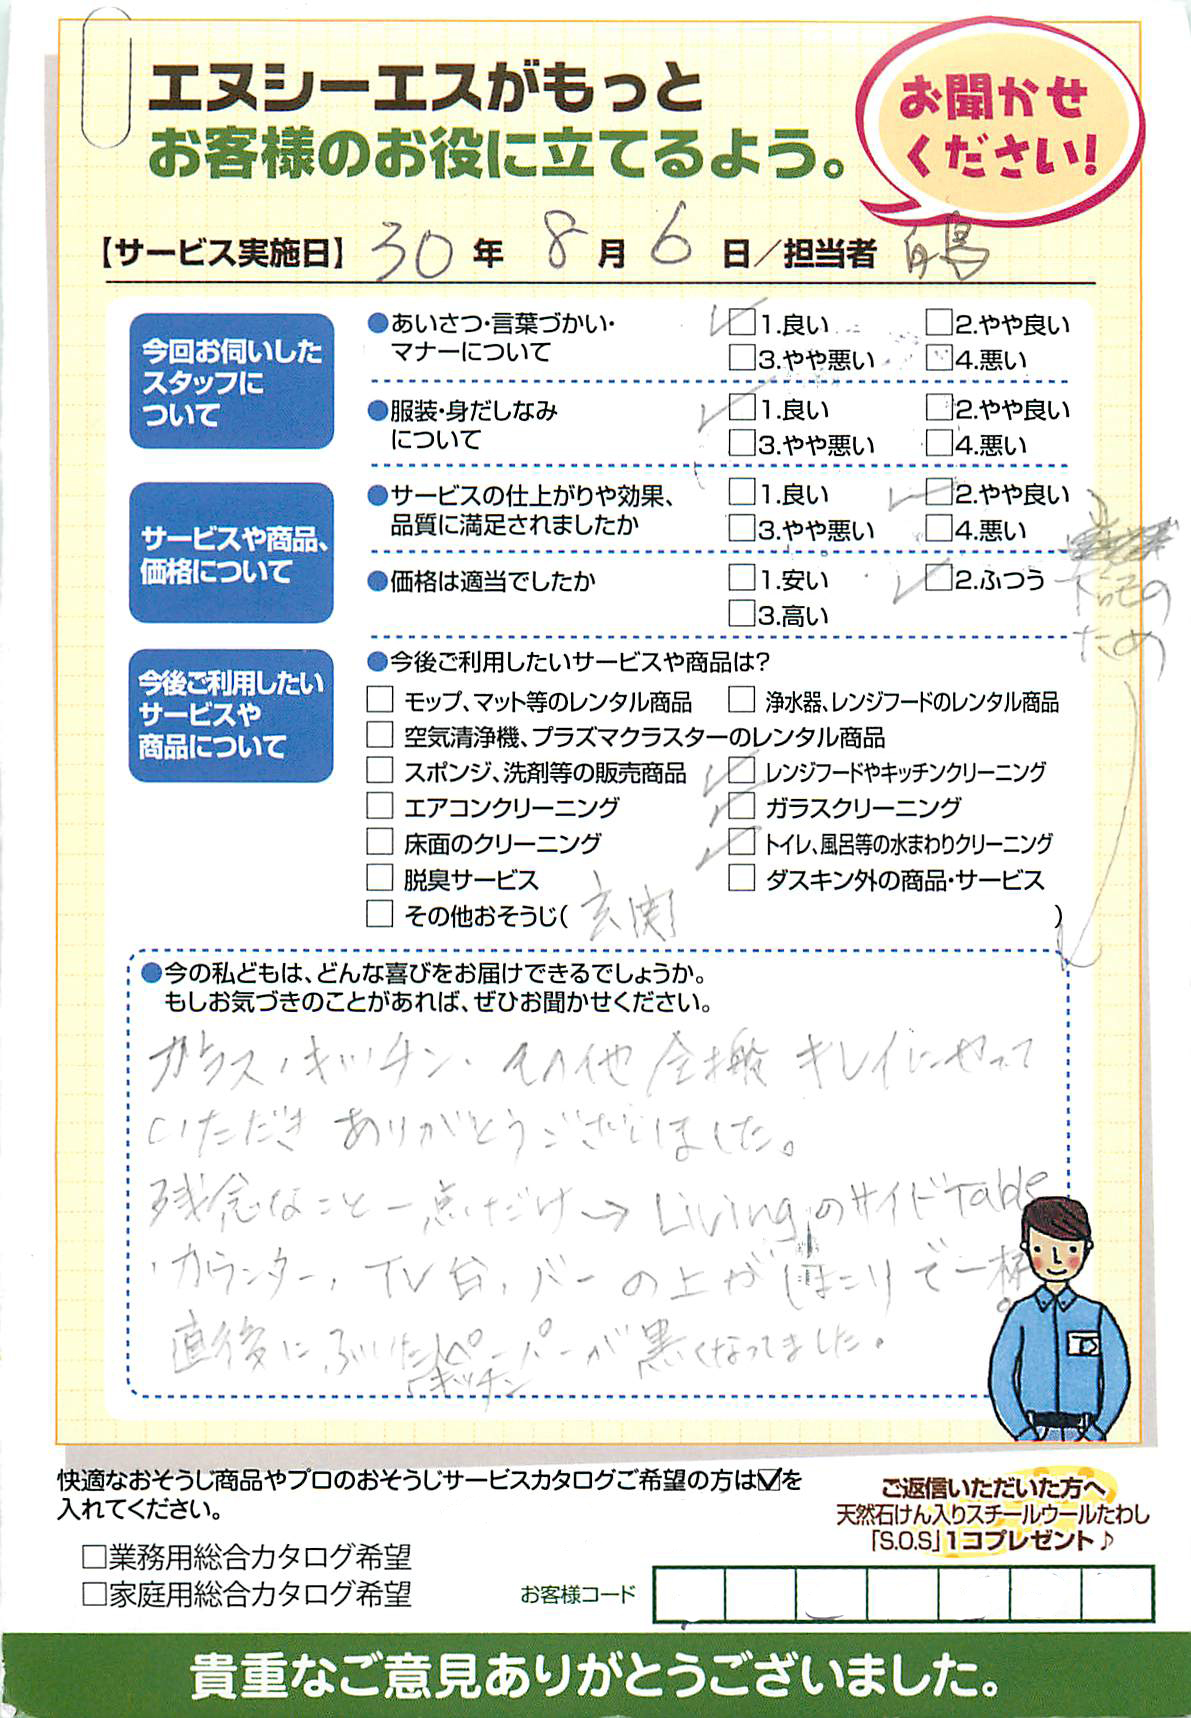 エヌシーエスがもっと
お客様のお役に立てるよう。
お聞かせ
ください!
【サービス実施日】 30 年 8 月 6 日／担当者
今回お伺いした
スタッフに
ついて
●あいさつ・言葉づかい・
マナーについて
□1.良い □2.やや良い
□3.やや悪い □4.悪い
●服装・身だしなみ
について
□1.良い □2.やや良い
□3.やや悪い □4.悪い
サービスや商品、
価格について
●サービスの仕上がりや効果、
品質に満足されましたか
□1.良い □2.やや良い
□3.やや悪い □4.悪い
●価格は適当でしたか
□1.安い □2.ふつう
□3.高い
下記の
ため
今後ご利用したい
サービスや
商品について
●今後ご利用したいサービスや商品は?
□ モップ、マット等のレンタル商品 □ 浄水器、レンジフードのレンタル商品
□ 空気清浄機、プラズマクラスターのレンタル商品
□ スポンジ、洗剤等の販売商品 □ レンジフードやキッチンクリーニング
□ エアコンクリーニング □ ガラスクリーニング
□ 床面のクリーニング □ トイレ、風呂等の水まわりクリーニング
□ 脱臭サービス □ ダスキン外の商品・サービス
□ その他おそうじ( 玄関 )
●今の私どもは、どんな喜びをお届けできるでしょうか。
もしお気づきのことがあれば、ぜひお聞かせください。
ガラス・キッチン・その他 全搬 キレイにやって
いただき ありがとうございました。
残念なこと一点だけ→ Livingのサイド Table
・カウンター, TV台, バーの上がほこりで一杯。
直後にふいたペーパーが黒くなってました。
キッチン
快適なおそうじ商品やプロのおそうじサービスカタログご希望の方は☑を
入れてください。
□業務用総合カタログ希望
□家庭用総合カタログ希望
ご返信いただいた方へ
天然石けん入りスチールウールたわし
「S.O.S」1コプレゼント♪
お客様コード
貴重なご意見ありがとうございました。